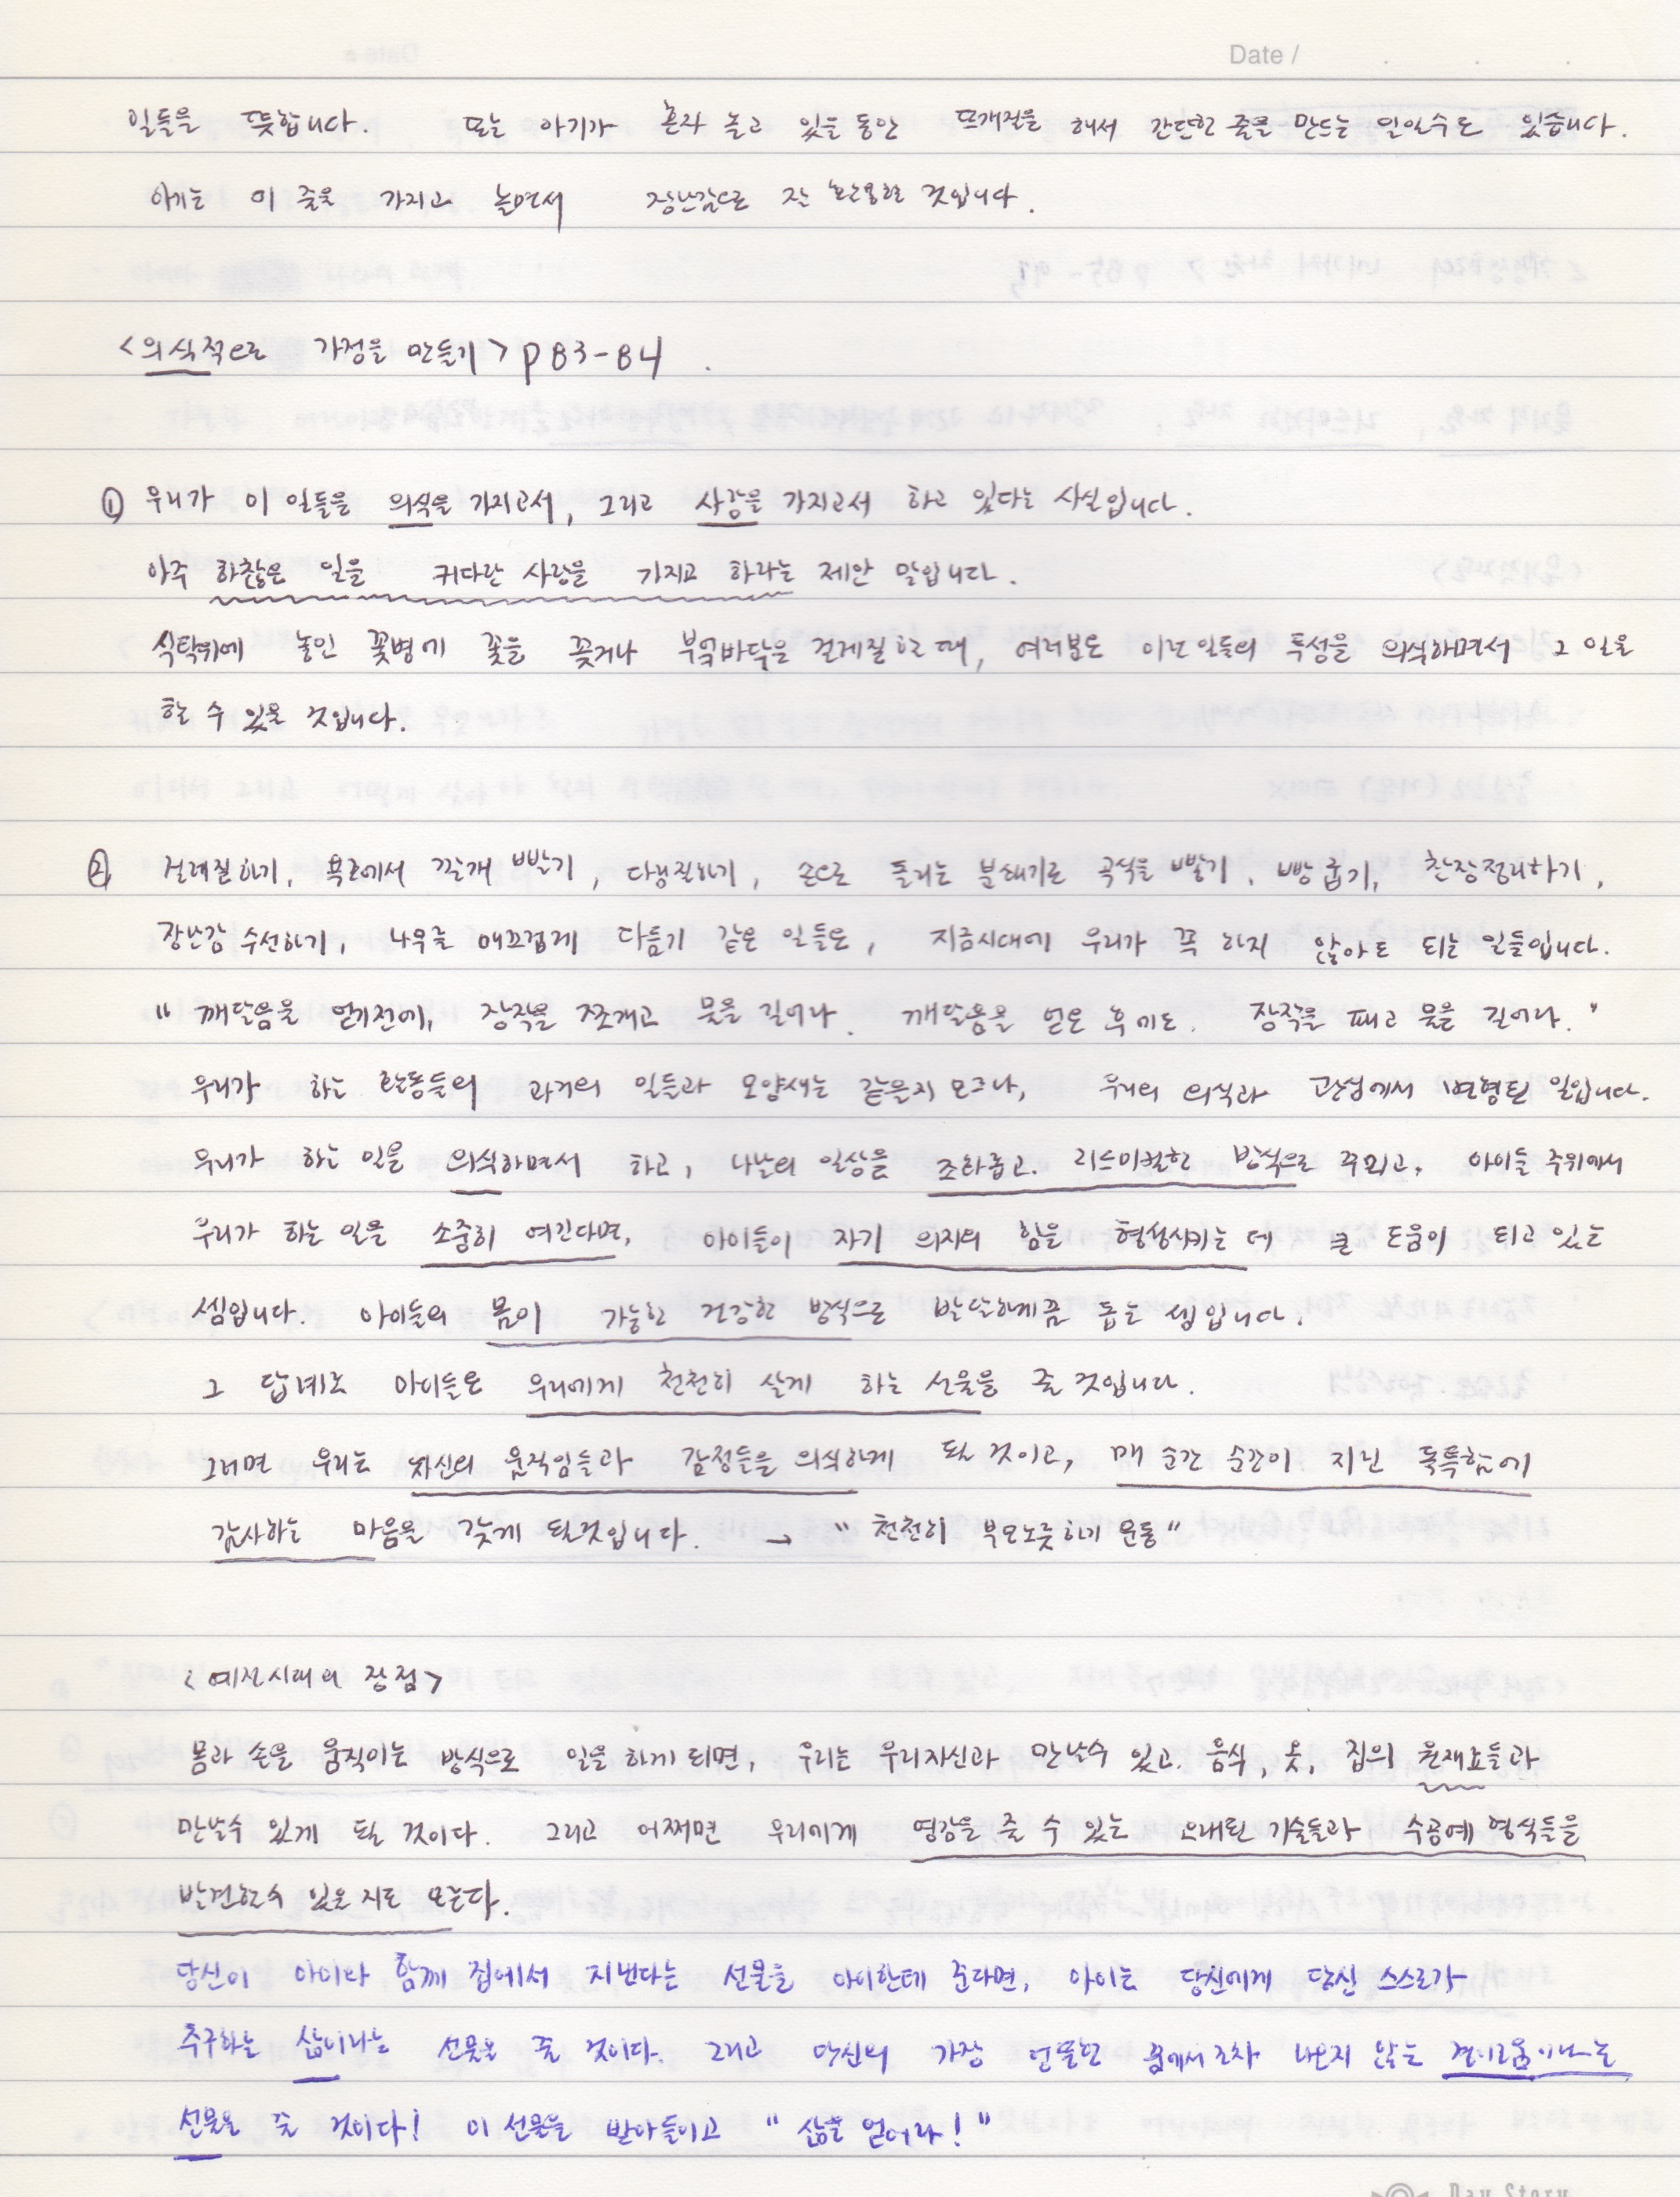 Date /
일들을 뜻합니다. 또는 아기가 혼자 놀고 있을 동안 뜨개질을 해서 간단한 줄을 만드는 일일수도 있습니다.
아기는 이 줄을 가지고 놀면서 장난감으로 잘 활용할 것입니다.
<의식적으로 가정을 만들기> p 83-84.
① 우리가 이 일들을 의식을 가지고서, 그리고 사랑을 가지고서 하고 있다는 사실입니다.
아주 하찮은 일을 커다란 사랑을 가지고 하라는 제안 말입니다.
식탁위에 놓인 꽃병에 꽃을 꽂거나 부엌바닥을 걸레질 할 때, 여러분은 이런 일들의 특성을 의식하면서 그 일을
할 수 있을 것입니다.
② 걸레질하기, 욕조에서 깔개 빨기, 다림질하기, 손으로 돌리는 분쇄기로 곡식을 빻기, 빵 굽기, 찬장정리하기,
장난감 수선하기, 나무를 매끄럽게 다듬기 같은 일들은, 지금시대에 우리가 꼭 하지 않아도 되는 일들입니다.
"깨달음을 얻기전에, 장작을 쪼개고 물을 길어라. 깨달음을 얻은 후에도. 장작을 패고 물을 길어라."
우리가 하는 활동들의 과거의 일들과 모양새는 같을지 모르나, 우리의 의식과 관점에서 변형된 일입니다.
우리가 하는 일을 의식하면서 하고, 나날의 일상을 조화롭고. 리드미컬한 방식으로 꾸리고, 아이들 주위에서
우리가 하는 일을 소중히 여긴다면, 아이들이 자기 의지의 힘을 형성시키는 데 큰 도움이 되고 있는
셈입니다. 아이들의 몸이 가능한 건강한 방식으로 발달하게끔 돕는 셈입니다.
그 답례로 아이들은 우리에게 천천히 살게 하는 선물을 줄 것입니다.
그러면 우리는 자신의 움직임들과 감정들을 의식하게 될 것이고, 매 순간 순간이 지닌 독특함에
감사하는 마음을 갖게 될것입니다. → "천천히 부모노릇하기 운동"
<예전시대의 장점>
몸과 손을 움직이는 방식으로 일을 하게 되면, 우리는 우리자신과 만날수 있고. 음식, 옷, 집의 원재료들과
만날수 있게 될 것이다. 그리고 어쩌면 우리에게 영감을 줄 수 있는 오래된 기술들과 수공예 형식들을
발견할수 있을 지도 모른다.
당신이 아이와 함께 집에서 지낸다는 선물을 아이한테 준다면, 아이는 당신에게 당신 스스로가
추구하는 삶이라는 선물을 줄 것이다. 그리고 당신의 가장 꿈에서조차 나오지 않는 경이로움이라는
선물을 줄 것이다! 이 선물을 받아들이고 "삶을 얻어라!"
Day Story